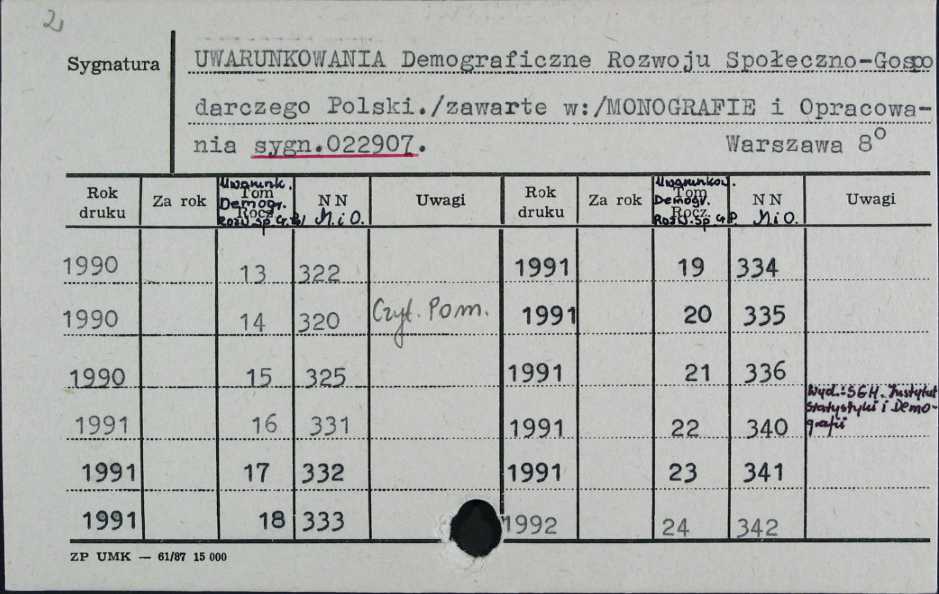 2
Sygnatura
UWARUNKOWANIA Demograficzne Rozwoju Społeczno-Gospo
darczego Polski./zawarte w:/MONOGRAFIE i Opracowa-
nia sygn.022907. Warszawa 8°
Rok druku Za rok Tom Rocz. Uwarunk. Demogr. Rozw. Sp. G. P/ NN M.i O. Uwagi Rok druku Za rok Tom Rocz. Uwarunkow. Demogr. Rozw. Sp. G P. NN M.i O. Uwagi
1990 13 322 1991 19 334
1990 14 320 Czyt. Pom. 1991 20 335
1990 15 325 1991 21 336
1991 16 331 1991 22 340 Wyd.: SGH. Instytut
Statystyki i Demo-
grafii
1991 17 332 1991 23 341
1991 18 333 1992 24 342
ZP UMK — 61/87 15 000